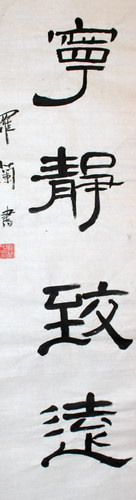 寧靜致遠
羅蘭書